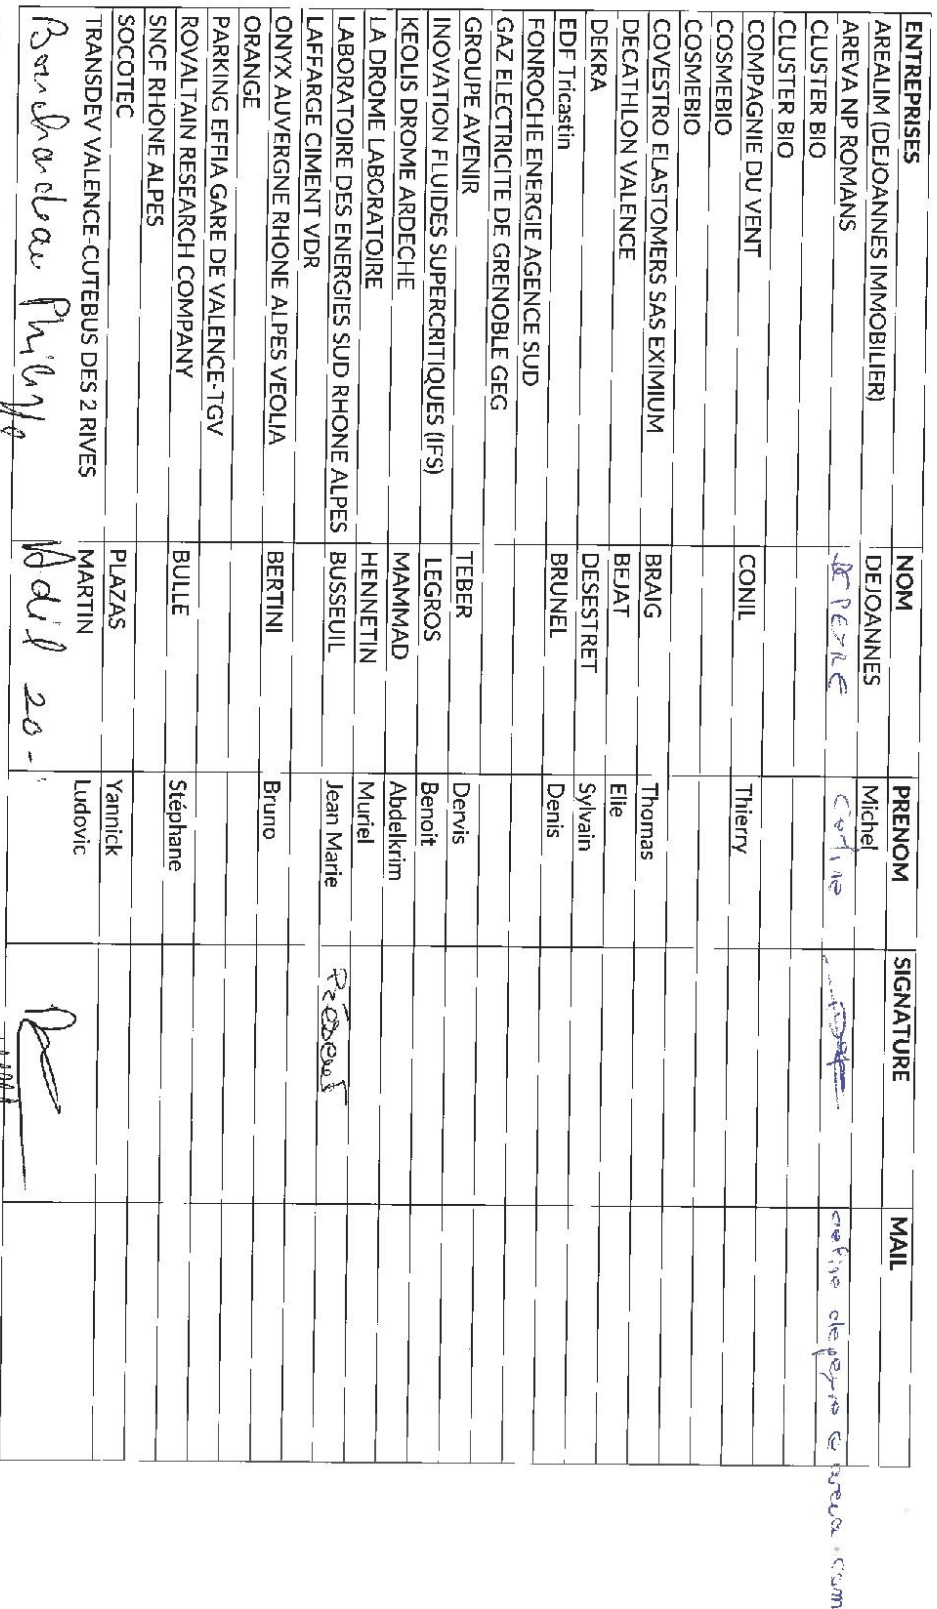 ENTREPRISES NOM PRENOM SIGNATURE MAIL
AREALIM (DEJOANNES IMMOBILIER) DEJOANNES Michel
AREVA NP ROMANS DE PEYRE
CLUSTER BIO
CLUSTER BIO
COMPAGNIE DU VENT CONIL Thierry
COSMEBIO
COSMEBIO
COVESTRO ELASTOMERS SAS EXIMIUM BRAIG Thomas
DECATHLON VALENCE BEJAT Elie
DEKRA DESESTRET Sylvain
EDF Tricastin BRUNEL Denis
FONROCHE ENERGIE AGENCE SUD
GAZ ELECTRICITE DE GRENOBLE GEG
GROUPE AVENIR TEBER Dervis
INOVATION FLUIDES SUPERCRITIQUES (IFS) LEGROS Benoit
KEOLIS DROME ARDECHE MAMMAD Abdelkrim
LA DROME LABORATOIRE HENNETIN Muriel
LABORATOIRE DES ENERGIES SUD RHONE ALPES BUSSEUIL Jean Marie Présent
LAFFARGE CIMENT VDR
ONYX AUVERGNE RHONE ALPES VEOLIA BERTINI Bruno
ORANGE
PARKING EFFIA GARE DE VALENCE-TGV
ROVALTAIN RESEARCH COMPANY BULLE Stéphane
SNCF RHONE ALPES
SOCOTEC PLAZAS Yannick
TRANSDEV VALENCE-CUTEBUS DES 2 RIVES MARTIN Ludovic
Philippe